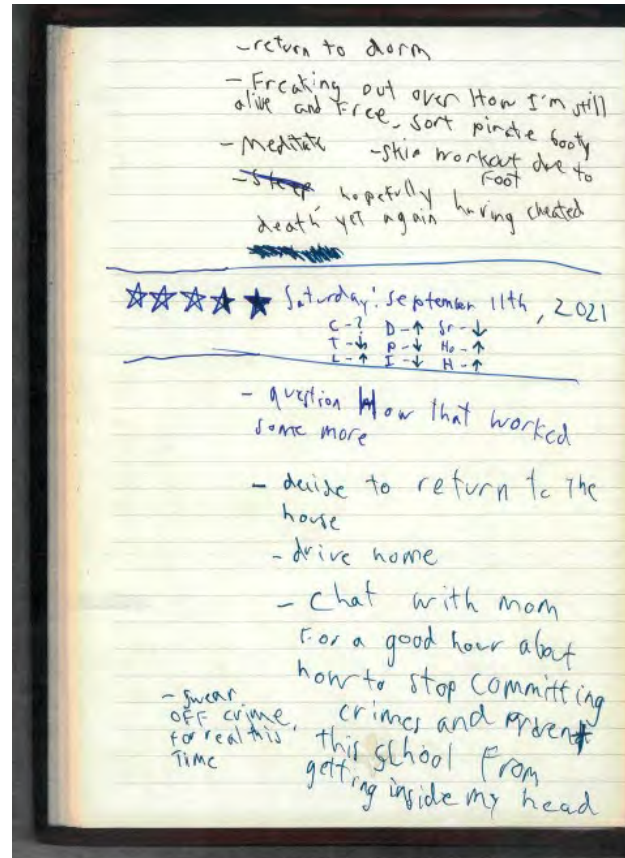 - return to dorm
- Freaking out over How I'm still
alive and Free, sort pirate booty
- Meditate - skip workout due to
Foot
- Sleep, hopefully having cheated
death yet again
Saturday: September 11th, 2021
C - ? D - ↑ Sr - ↓
T - ↓ P - ↓ Ho - ↑
L - ↑ I - ↓ H - ↑
- question How that worked
some more
- decide to return to the
house
- drive home
- Chat with mom
For a good hour about
how to stop committing
crimes and prevent
this school From
getting inside my head
- swear
OFF crime,
for real this
Time